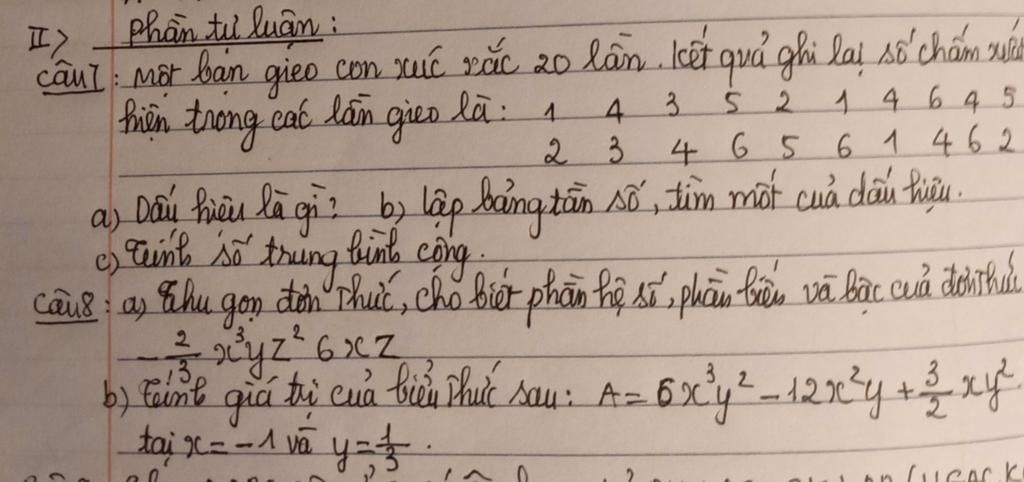 II> Phần tự luận:
Câu 7: Một bạn gieo con xúc xắc 20 lần. Kết quả ghi lại số chấm xuất
hiện trong các lần gieo là: 1 4 3 5 2 1 4 6 4 5
2 3 4 6 5 6 1 4 6 2
a) Dấu hiệu là gì? b) lập bảng tần số, tìm mốt của dấu hiệu.
c) Tính số trung bình cộng.
Câu 8: a) Thu gọn đơn thức, cho biết phần hệ số, phần biến và bậc của đơn thức
-2/3 x³yz² 6xz
b) Tính giá trị của biểu thức sau: A = 6x³y² - 12x²y + 3/2 xy²
tại x = -1 và y = 1/3.